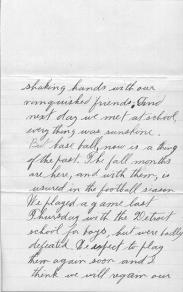 shaking hands with our
vanquished friends. And
next day we met at school
every thing was sunshine.
But base ball, now is a thing
of the past. The fall months
are here, and with them, is
usured in the football season
We played a game last
Thursday with the Detroit
school for boys, but were badly
defeated. We expect to play
them again soon and I
think we will regain our